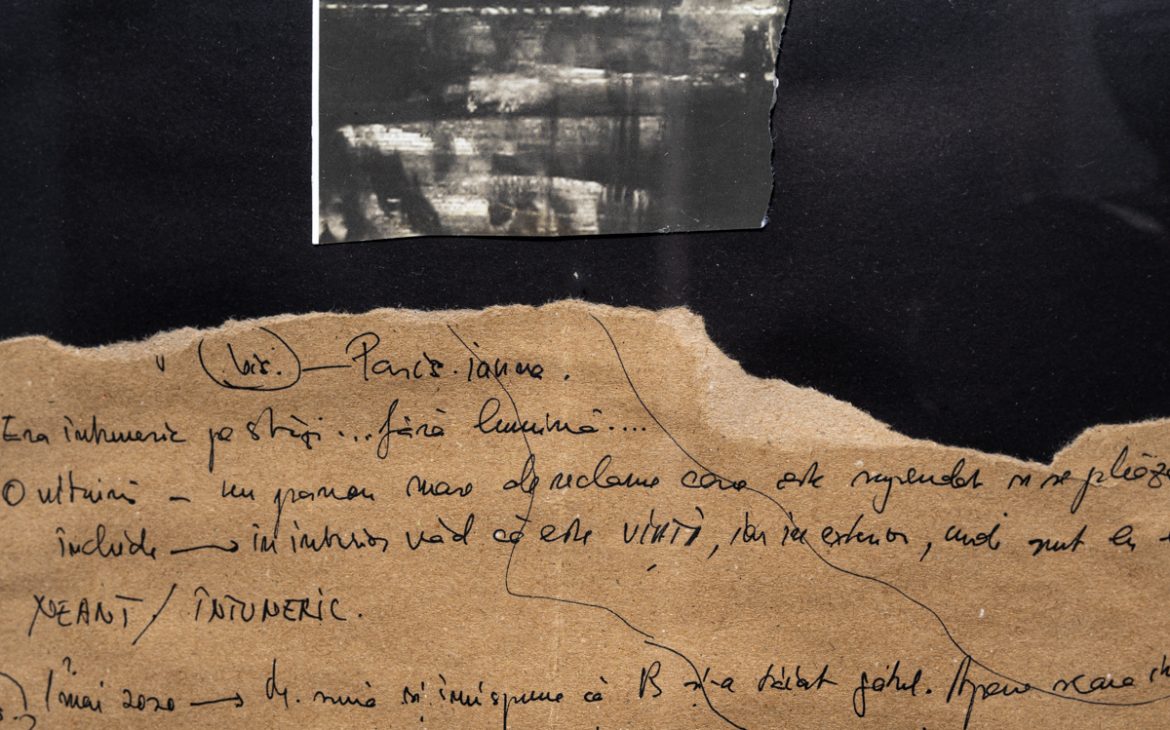 bis. — Paris. iarna.
Era întuneric pe străzi... fără lumină....
O vitrină — un panou mare de reclame care este suspendat și se pliază
închide → în interior văd că este VIAȚĂ, iar în exterior, unde sunt eu
NEANT / ÎNTUNERIC.
1 mai 2020 → și îmi spune că B și-a tăiat gâtul. Apare scara